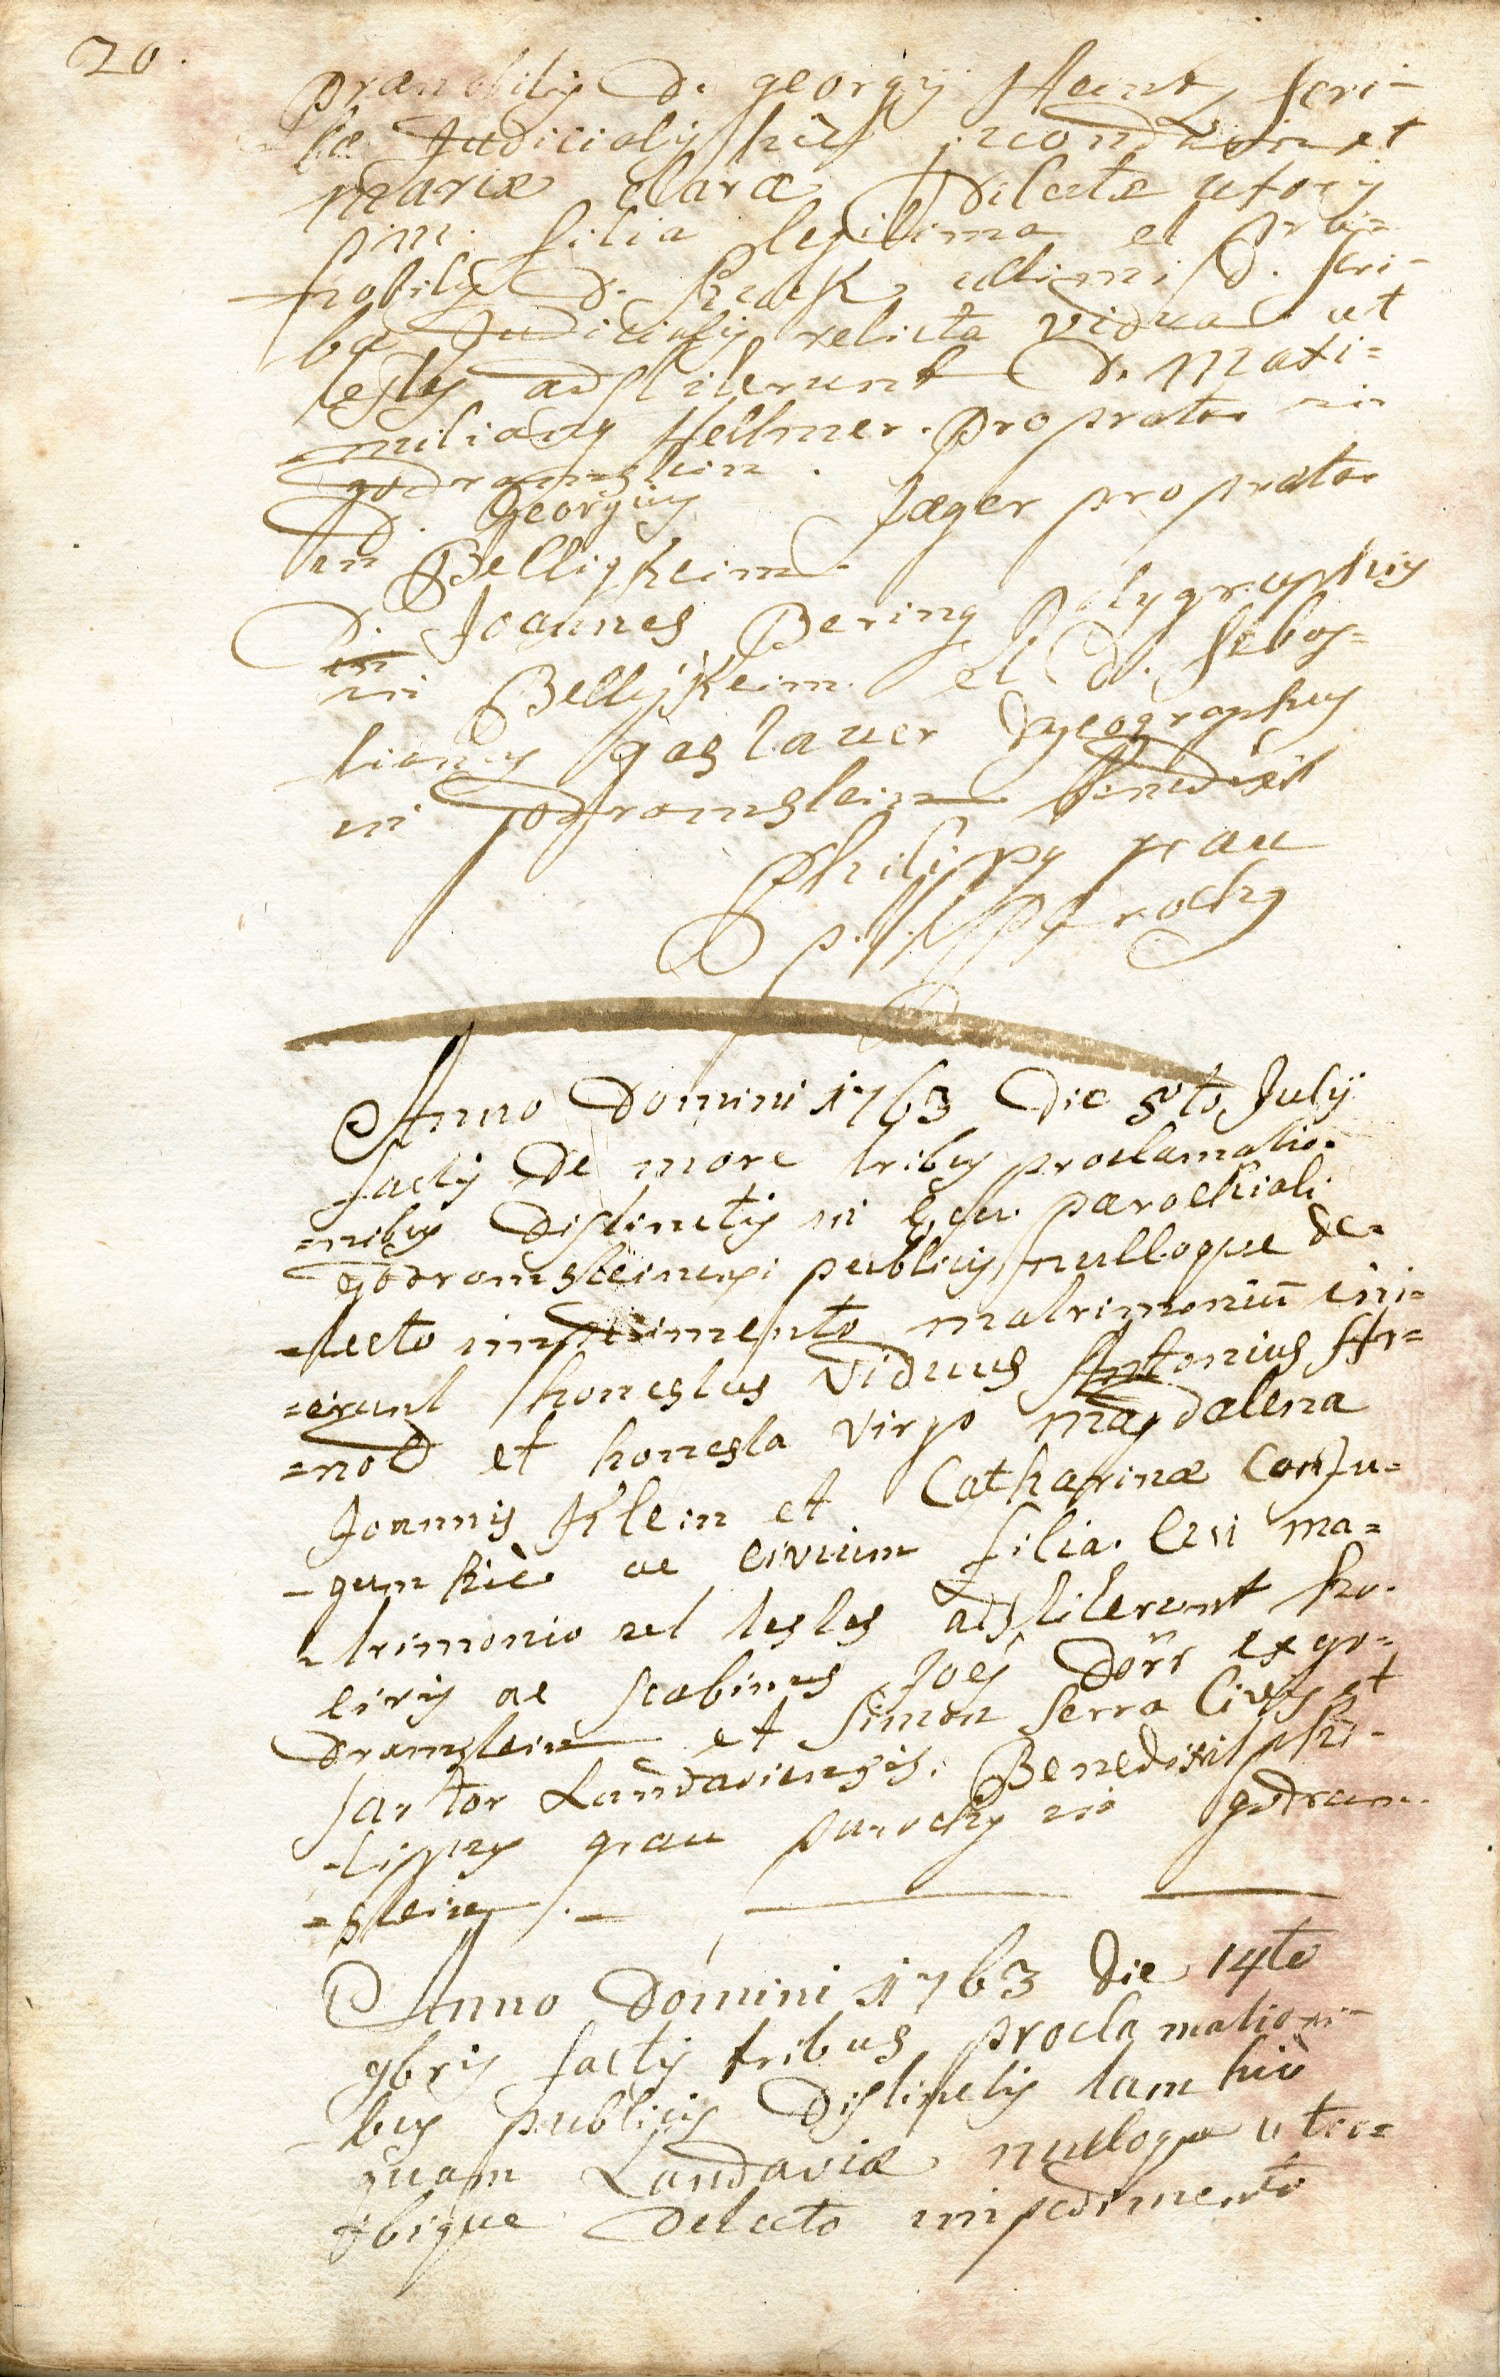 20.
prænobilis D. georgii Heint, scri-
bæ Judicialis hic secondum et
mariæ claræ Dilectæ uxoris
p.m. filia legitima et præ=
nobilis D. Knack ultimi D. scri-
ba Judicialis relicta vidua ut
testes adstiterunt D. Maxi=
miliang Hellmer. proprætor in
godramstein.
D. Georgius Jæger proprætor
in Belligheim.
D. Joannes Bering Polygraphus
in Belligheim et D. sebas=
tianus gaslauer Dyeographus
in godramstein benedixit
Philippg grau
p.t. parochg
Anno Domini 1763 Die 5to July
factis De more tribus proclamatio=
=nibus Distinctis in Eccl. parochiali
godramsteinensi publicis nulloque de=
=tecto impedimento matrimoniū ini=
=erunt honestus viduus Antonius Ar=
=nold et honesta virgo magdalena
Joannis Klein et Catharinæ Conju=
=gum hic ac civium filia. Cui ma=
=trimonio ut testes adstiterunt ho.
civis ac scabinus Joes Dörr ex go=
dramstein et simon serra Civis et
sartor Landaviensis. Benedixit phi=
=lippus grau parochg in godram=
=stein.
Anno Domini 1763 die 14to
9bris factis tribus proclamationi=
bus publicis Distinctis tam hic
quam Landaviæ nulloque utro=
=bique Detecto impedimento